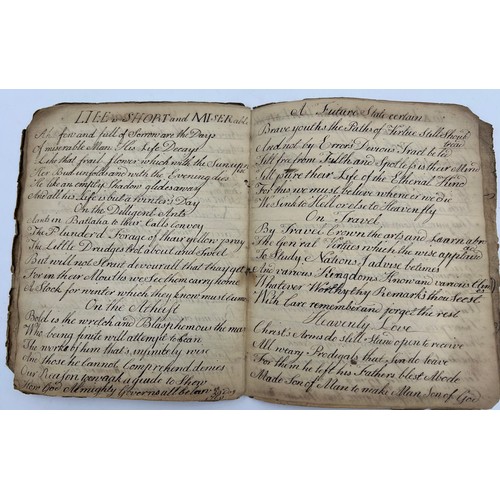 LIFE is SHORT and MISERable
Ah few and full of Sorrow are the Days
Of miserable Man His Life Decays
Like that frail flower which with the Sun uprises
Her Bud unfolds and with the Evening dies
He like an empty Shadow glides away
And all his Life is but a winters Day
On the Dilligent Ants
Ants in Battalia to their Calls convoy
The Plunderd Forage of thair yellow pray
The Little Drudges trot about and Sweet
But will not Strait devour all that thay get
For in their Mouths we See them carry home
A Stock for winter which they know must come
On the Atheist
Bold is the wretch and Blasphemous the man
Who being finite will attempt to scan
The works of him that is infinitely wise
And those he cannot Comprehend denies
Our Reason too weak a guide to Show
How God Almighty Governs all below
A Future State certain
Brave youths the Paths of Virtue Still Should tread
And not by Errors Devious Tract be led
Still free from Fulth and Spotless is their Mind
Still pure their Life of the Etherial Kind
For this we must believe when e'er we die
We Sink to Hell or else to Heaven fly
On Travel
By Travel Crown the arts and Learn abroad
The Gen'ral Virtues which the wise applaud
To Study Nations I advise betimes
And various Kingdoms Know and various Climes
Whatever Worthy thy Remarks thou Seest
With Care remember and forget the rest
Heavenly Love
Christ's Arms do still Stand open to receive
All weary Prodigals that Sin do leave
For them he left his Fathers blest Abode
Made Son of Man to make Man Son of God